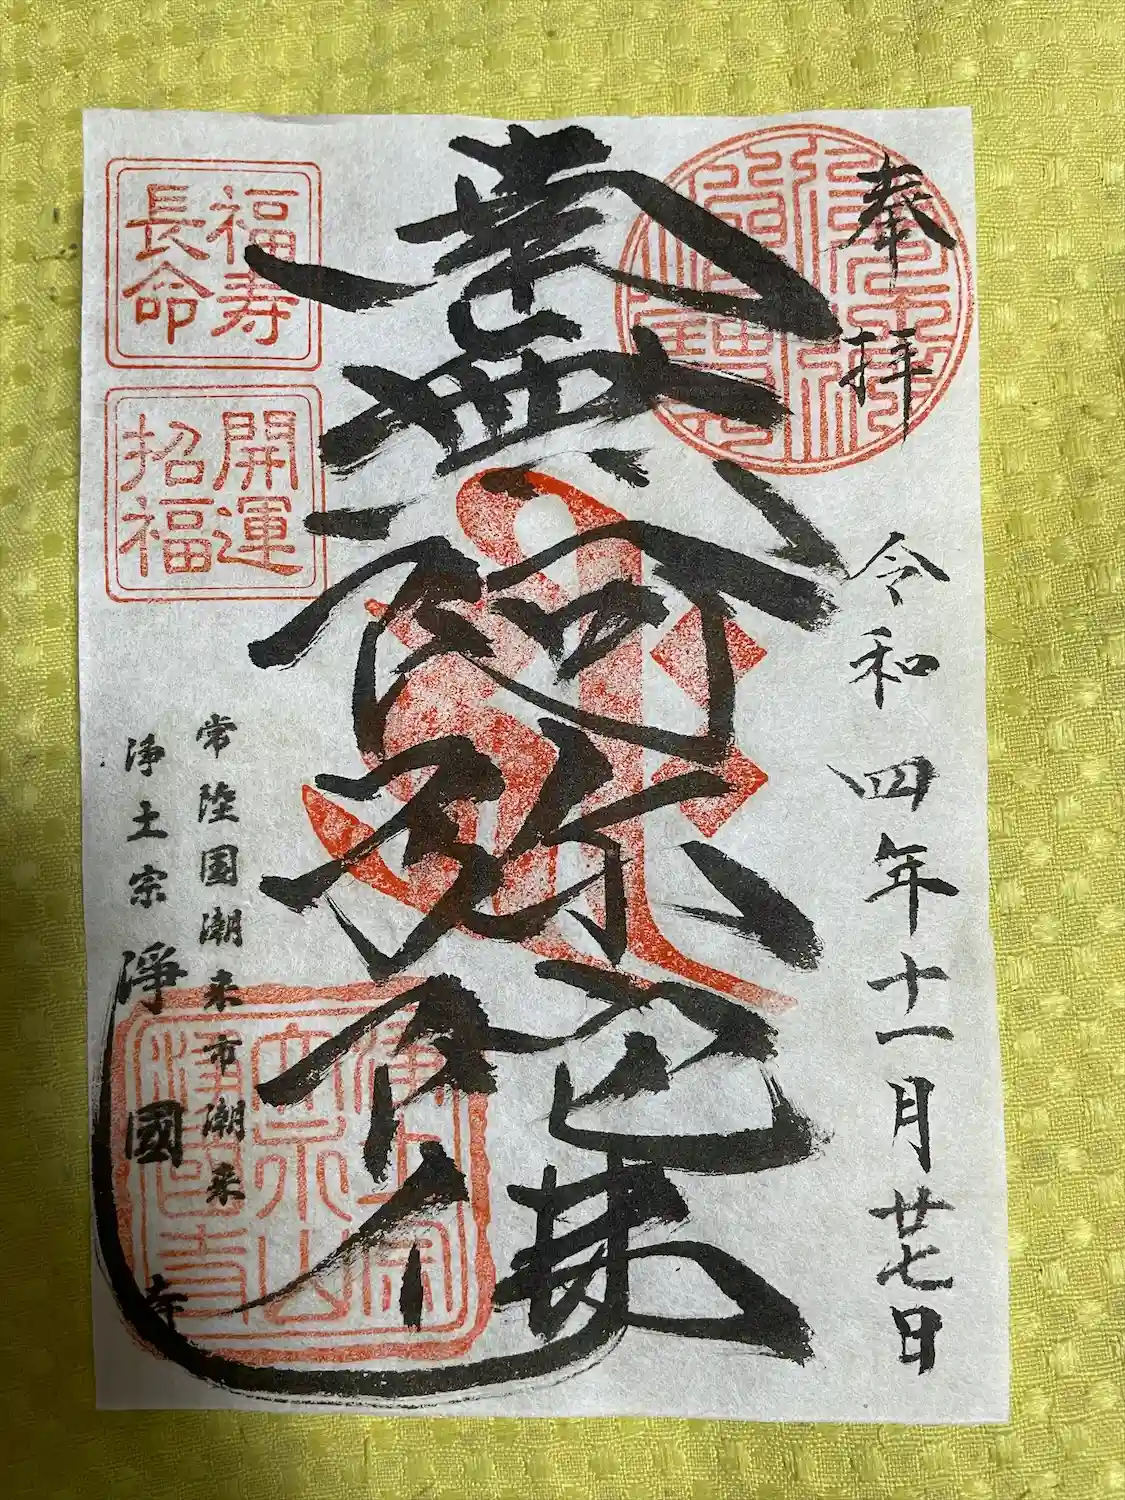 奉拝
令和四年十一月廿七日
南無阿弥陀佛
福寿
長命
開運
招福
常陸国潮来市潮来
浄土宗 淨國寺